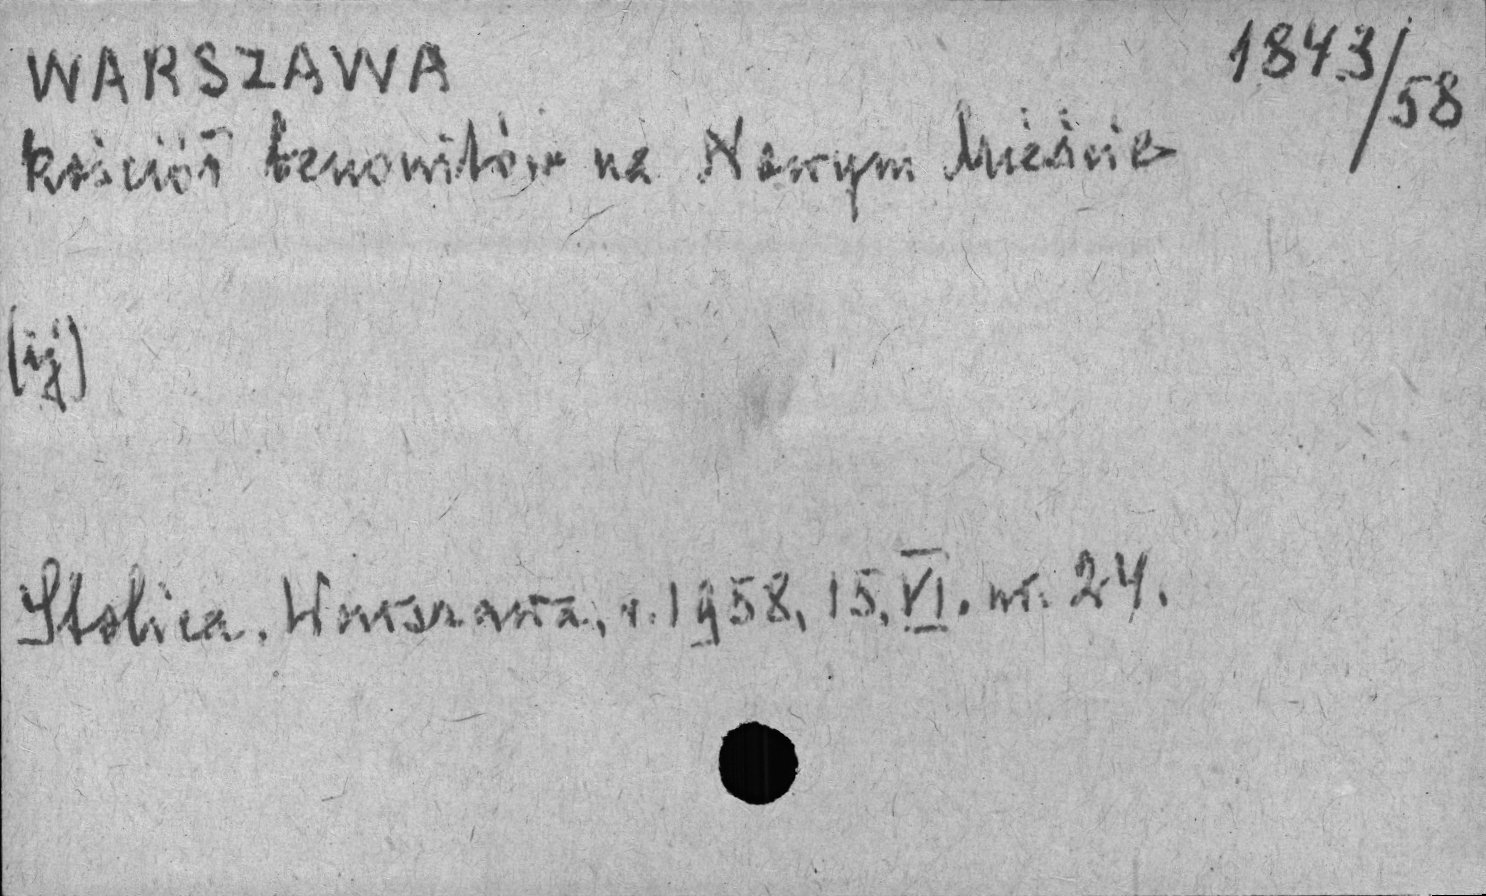 WARSZAWA
1843/58
kościół benonitów na Nowym Mieście
(ij)
Stolica. Warszawa, r. 1958, 15.VI. nr. 24.